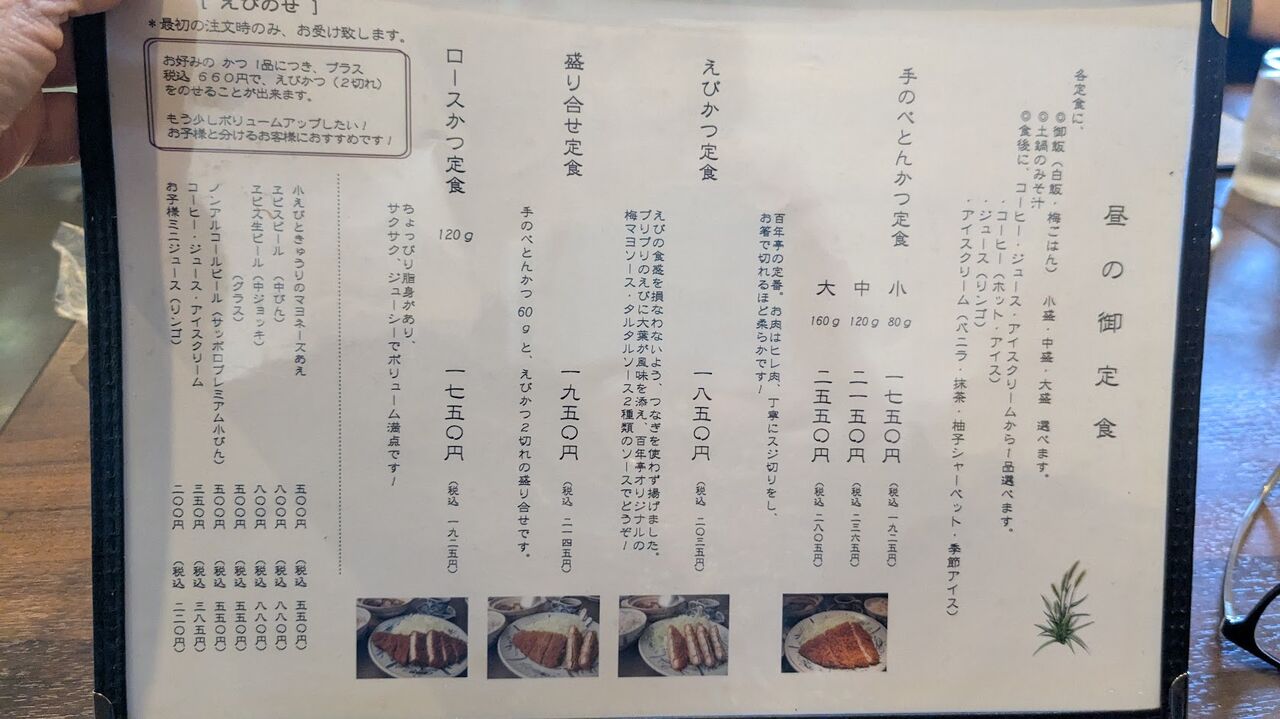 昼の御定食
各定食に、
◎御飯（白飯・梅ごはん）　小盛・中盛・大盛　選べます。
◎土鍋のみそ汁
◎食後に、コーヒー・ジュース・アイスクリームから1品選べます。
・コーヒー（ホット・アイス）
・ジュース（リンゴ）
・アイスクリーム（バニラ・抹茶・柚子シャーベット・季節アイス）
手のべとんかつ定食
小　80g　一七五〇円　（税込　一九二五円）
中　120g　二一五〇円　（税込　二三六五円）
大　160g　二五五〇円　（税込　二八〇五円）
百年亭の定番。お肉はヒレ肉、丁寧にスジ切りをし、
お箸で切れるほど柔らかです！
えびかつ定食　一八五〇円　（税込　二〇三五円）
えびの食感を損なわないよう、つなぎを使わず揚げました。
プリプリのえびに大葉が風味を添え、百年亭オリジナルの
梅マヨソース・タルタルソース2種類のソースでどうぞ！
盛り合せ定食　一九五〇円　（税込　二一四五円）
手のべとんかつ60gと、えびかつ2切れの盛り合せです。
ロースかつ定食　120g　一七五〇円　（税込　一九二五円）
ちょっぴり脂身があり、
サクサク、ジューシーでボリューム満点です！
[ えびのせ ]
*最初の注文時のみ、お受け致します。
お好みの かつ 1品につき、プラス
税込 660円で、えびかつ（2切れ）
をのせることが出来ます。
もう少しボリュームアップしたい！
お子様と分けるお客様におすすめです！
小えびときゅうりのマヨネーズあえ　五〇〇円　（税込　五五〇円）
ヱビスビール　（中びん）　八〇〇円　（税込　八八〇円）
ヱビス生ビール（中ジョッキ）　八〇〇円　（税込　八八〇円）
（グラス）　五〇〇円　（税込　五五〇円）
ノンアルコールビール（サッポロプレミアム小びん）　五〇〇円　（税込　五五〇円）
コーヒー・ジュース・アイスクリーム　三五〇円　（税込　三八五円）
お子様ミニジュース（リンゴ）　二〇〇円　（税込　二二〇円）